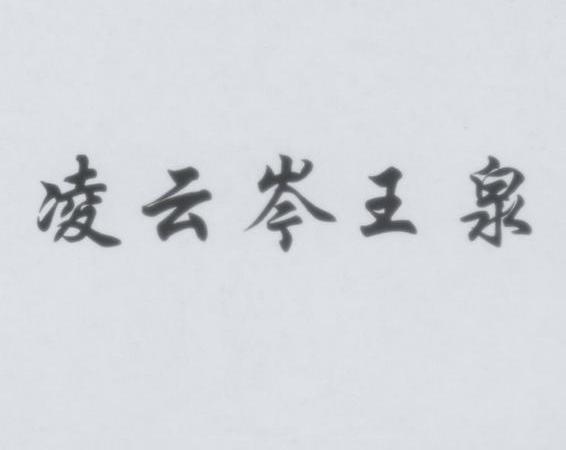 凌云岑王泉